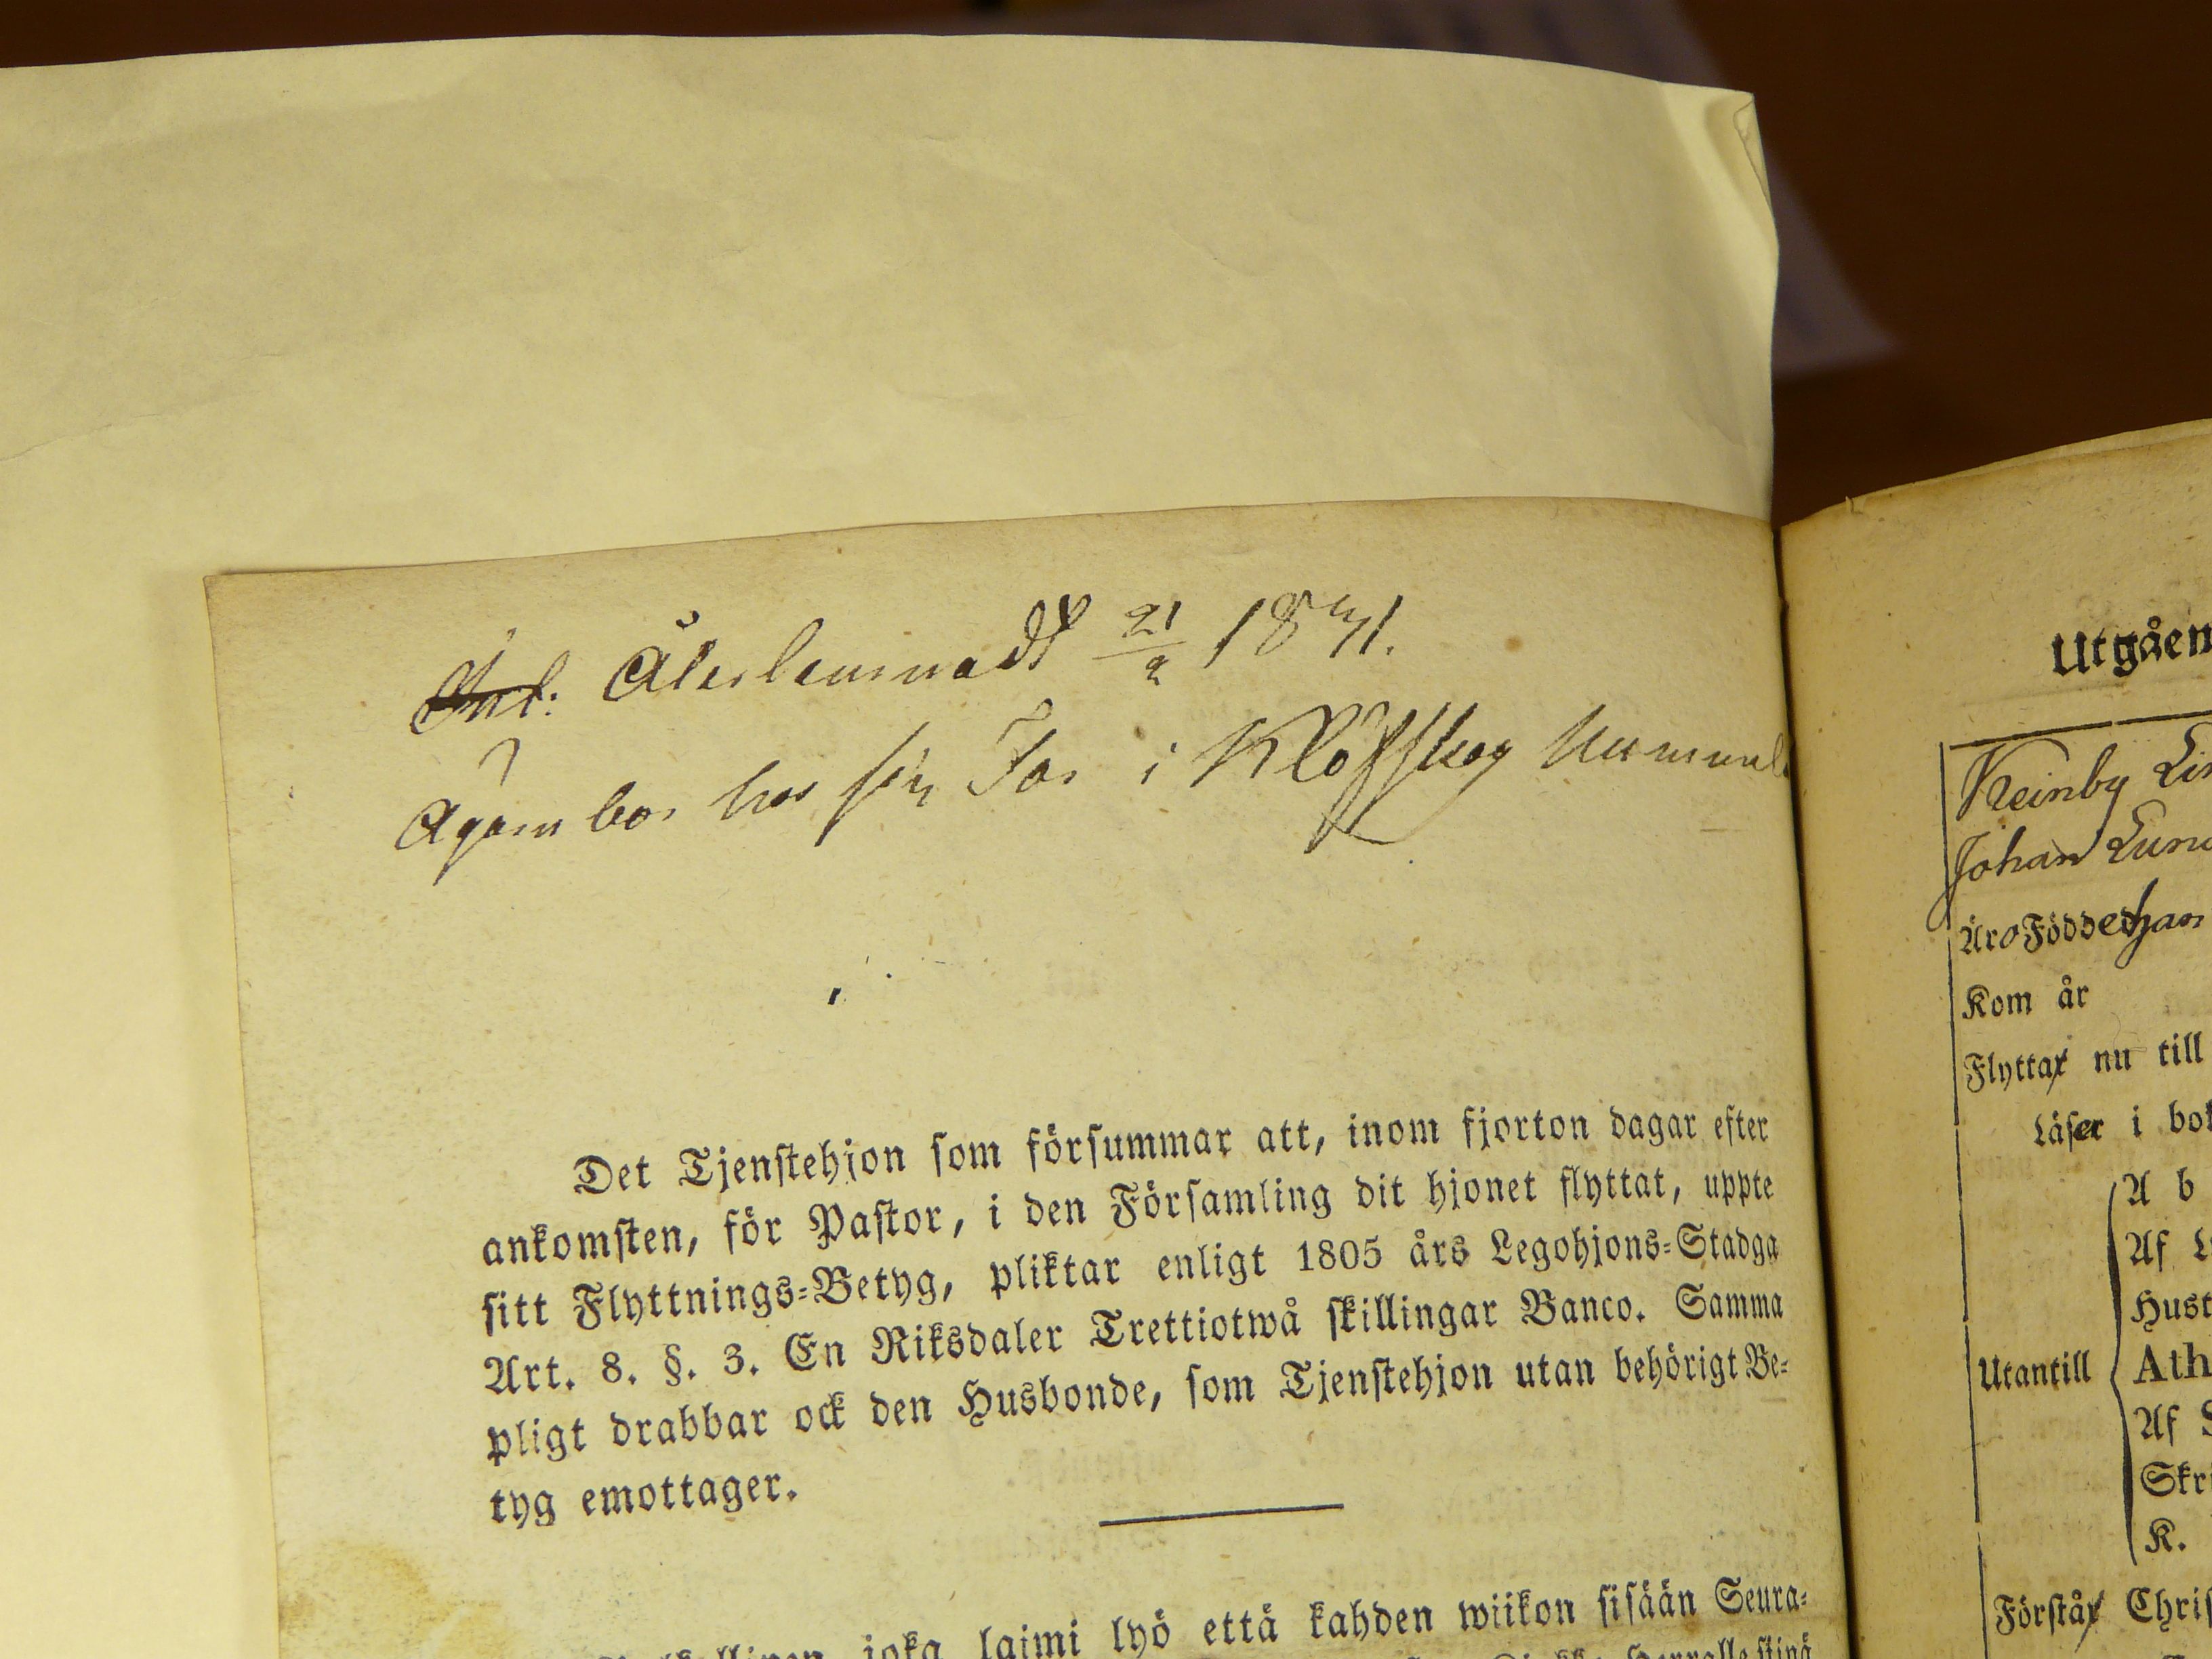 Återlemnadt 21/9 1841.
Ägarn bor hos sin Far i Klöfskog
Det Tjenstehjon som försummar att, inom fjorton dagar efter
ankomsten, för Pastor, i den Församling dit hjonet flyttat, uppte
sitt Flyttnings-Betyg, pliktar enligt 1805 års Legohjons-Stadga
Art. 8. §. 3. En Riksdaler Trettiotwå skillingar Banco. Samma
pligt drabbar ock den Husbonde, som Tjenstehjon utan behörigt Be-
tyg emottager.
joka laimi lyö että kahden wiikon sisään Seura-
Utgåen
Keinby
Johan
Äro Födde han
Kom år
Flyttar nu till
Läser i bok
A b
Af
Hust
Utantill Ath
Af S
Skri
K.
Förstår Chris